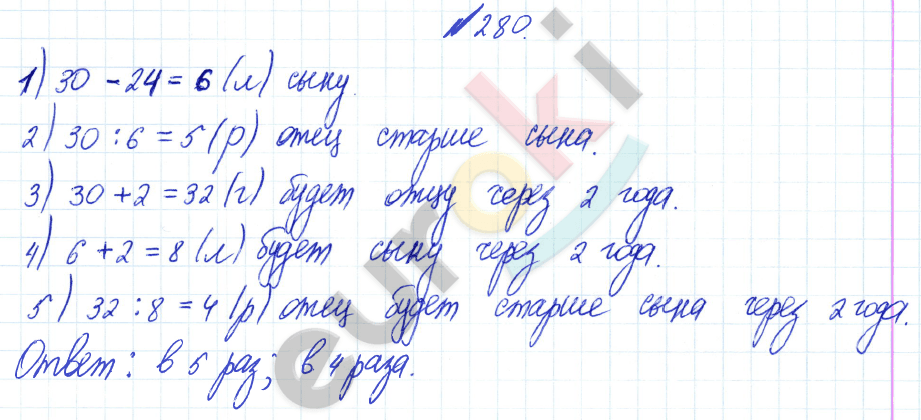 №280.
1) 30 - 24 = 6 (л) сыну.
2) 30 : 6 = 5 (р) отец старше сына.
3) 30 + 2 = 32 (г) будет отцу через 2 года.
4) 6 + 2 = 8 (л) будет сыну через 2 года.
5) 32 : 8 = 4 (р) отец будет старше сына через 2 года.
Ответ: в 5 раз; в 4 раза.
euroki